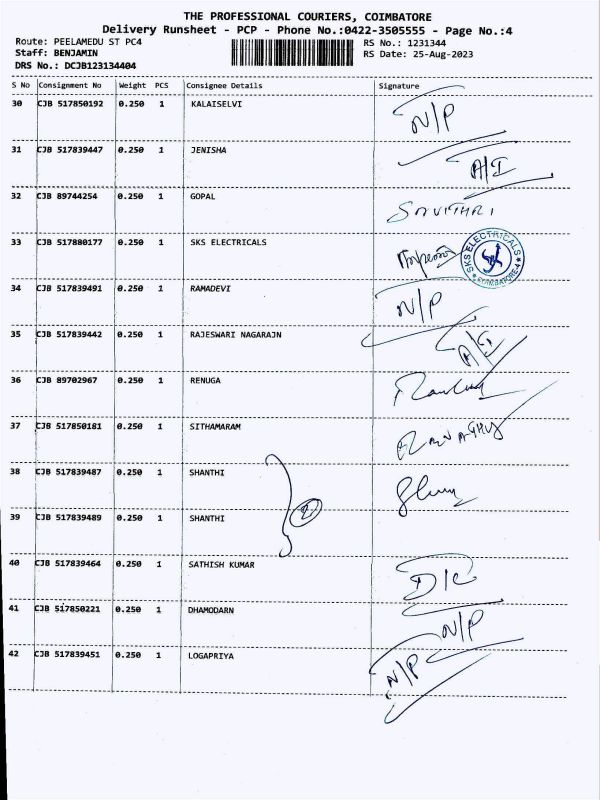 THE PROFESSIONAL COURIERS, COIMBATORE
Delivery Runsheet - PCP - Phone No.:0422-3505555 - Page No.:4
Route: PEELAMEDU ST PC4 RS No.: 1231344
Staff: BENJAMIN RS Date: 25-Aug-2023
DRS No.: DCJB123134404
S No Consignment No Weight PCS Consignee Details Signature
30 CJB 517850192 0.250 1 KALAISELVI N/P
31 CJB 517839447 0.250 1 JENISHA A/I
32 CJB 89744254 0.250 1 GOPAL SAVITHRI
33 CJB 517880177 0.250 1 SKS ELECTRICALS SKS ELECTRICALS COIMBATORE-4
34 CJB 517839491 0.250 1 RAMADEVI N/P
35 CJB 517839442 0.250 1 RAJESWARI NAGARAJN A/I
36 CJB 89702967 0.250 1 RENUGA
37 CJB 517850181 0.250 1 SITHAMARAM
38 CJB 517839487 0.250 1 SHANTHI
39 CJB 517839489 0.250 1 SHANTHI 2
40 CJB 517839464 0.250 1 SATHISH KUMAR D/C
41 CJB 517850221 0.250 1 DHAMODARN N/P
42 CJB 517839451 0.250 1 LOGAPRIYA N/P